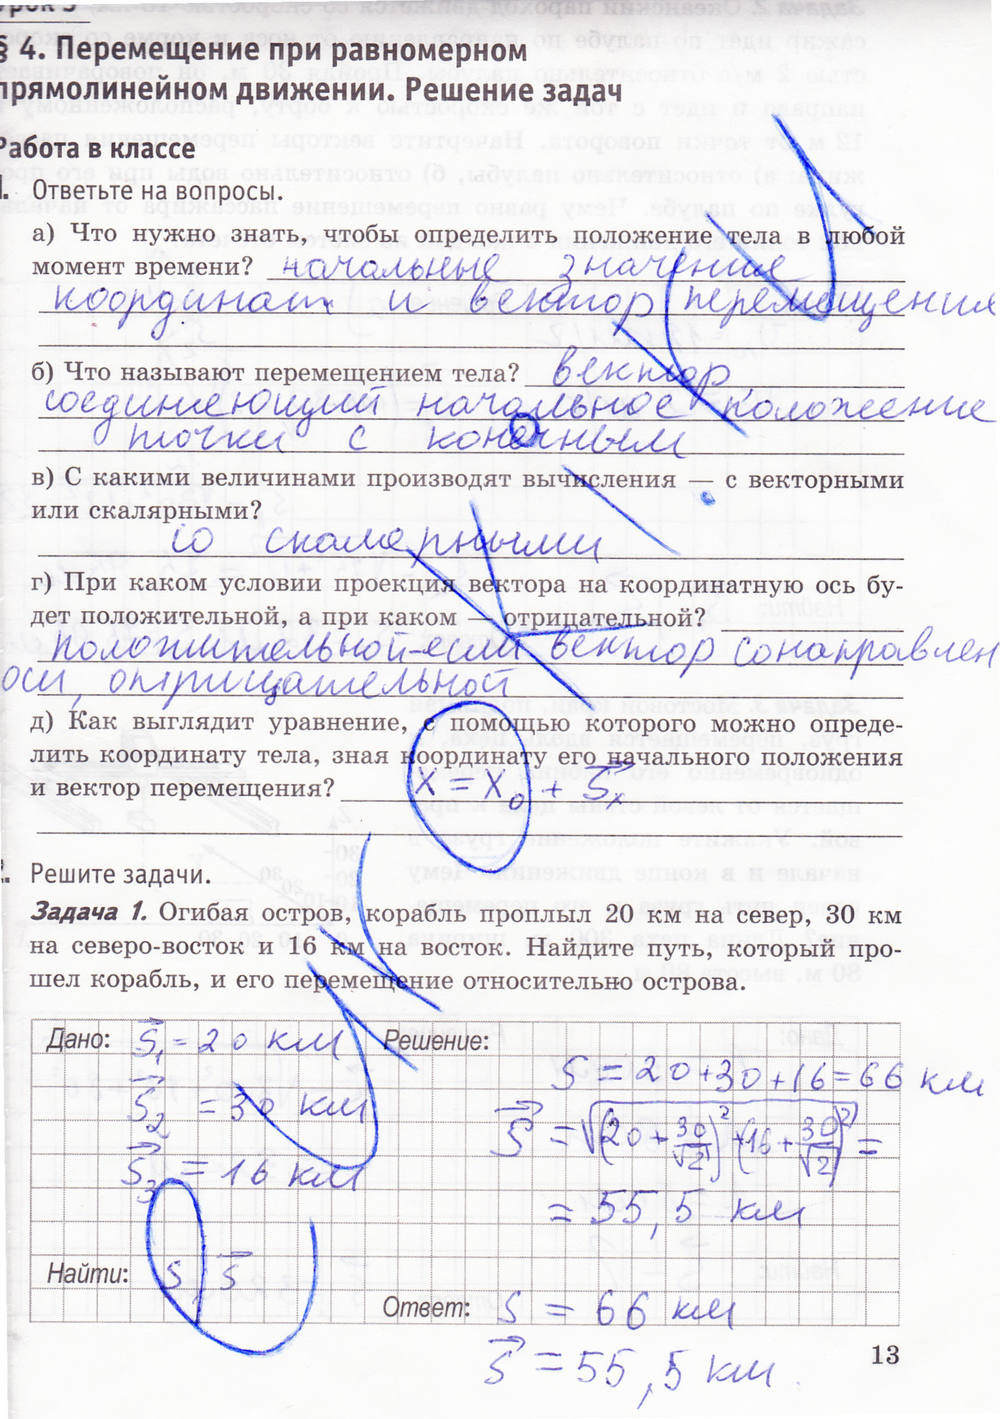 Урок 3
§ 4. Перемещение при равномерном
прямолинейном движении. Решение задач
Работа в классе
1. Ответьте на вопросы.
а) Что нужно знать, чтобы определить положение тела в любой
момент времени? начальные значения
координат и вектор перемещения
б) Что называют перемещением тела? вектор
соединяющий начальное положение
точки с конечным
в) С какими величинами производят вычисления — с векторными
или скалярными?
со скалярными
г) При каком условии проекция вектора на координатную ось бу-
дет положительной, а при каком — отрицательной?
положительной-если вектор сонаправлен
оси, отрицательной
д) Как выглядит уравнение, с помощью которого можно опреде-
лить координату тела, зная координату его начального положения
и вектор перемещения? X = X₀ + Sₓ
2. Решите задачи.
Задача 1. Огибая остров, корабль проплыл 20 км на север, 30 км
на северо-восток и 16 км на восток. Найдите путь, который про-
шел корабль, и его перемещение относительно острова.
Дано: S₁ = 20 км Решение:
S = 20+30+16=66 км
S₂ = 30 км
S = √(20+30/√2)²+(16+30/√2)² =
S₃ = 16 км
= 55,5 км
Найти: S, S
Ответ: S = 66 км
S = 55,5 км
13